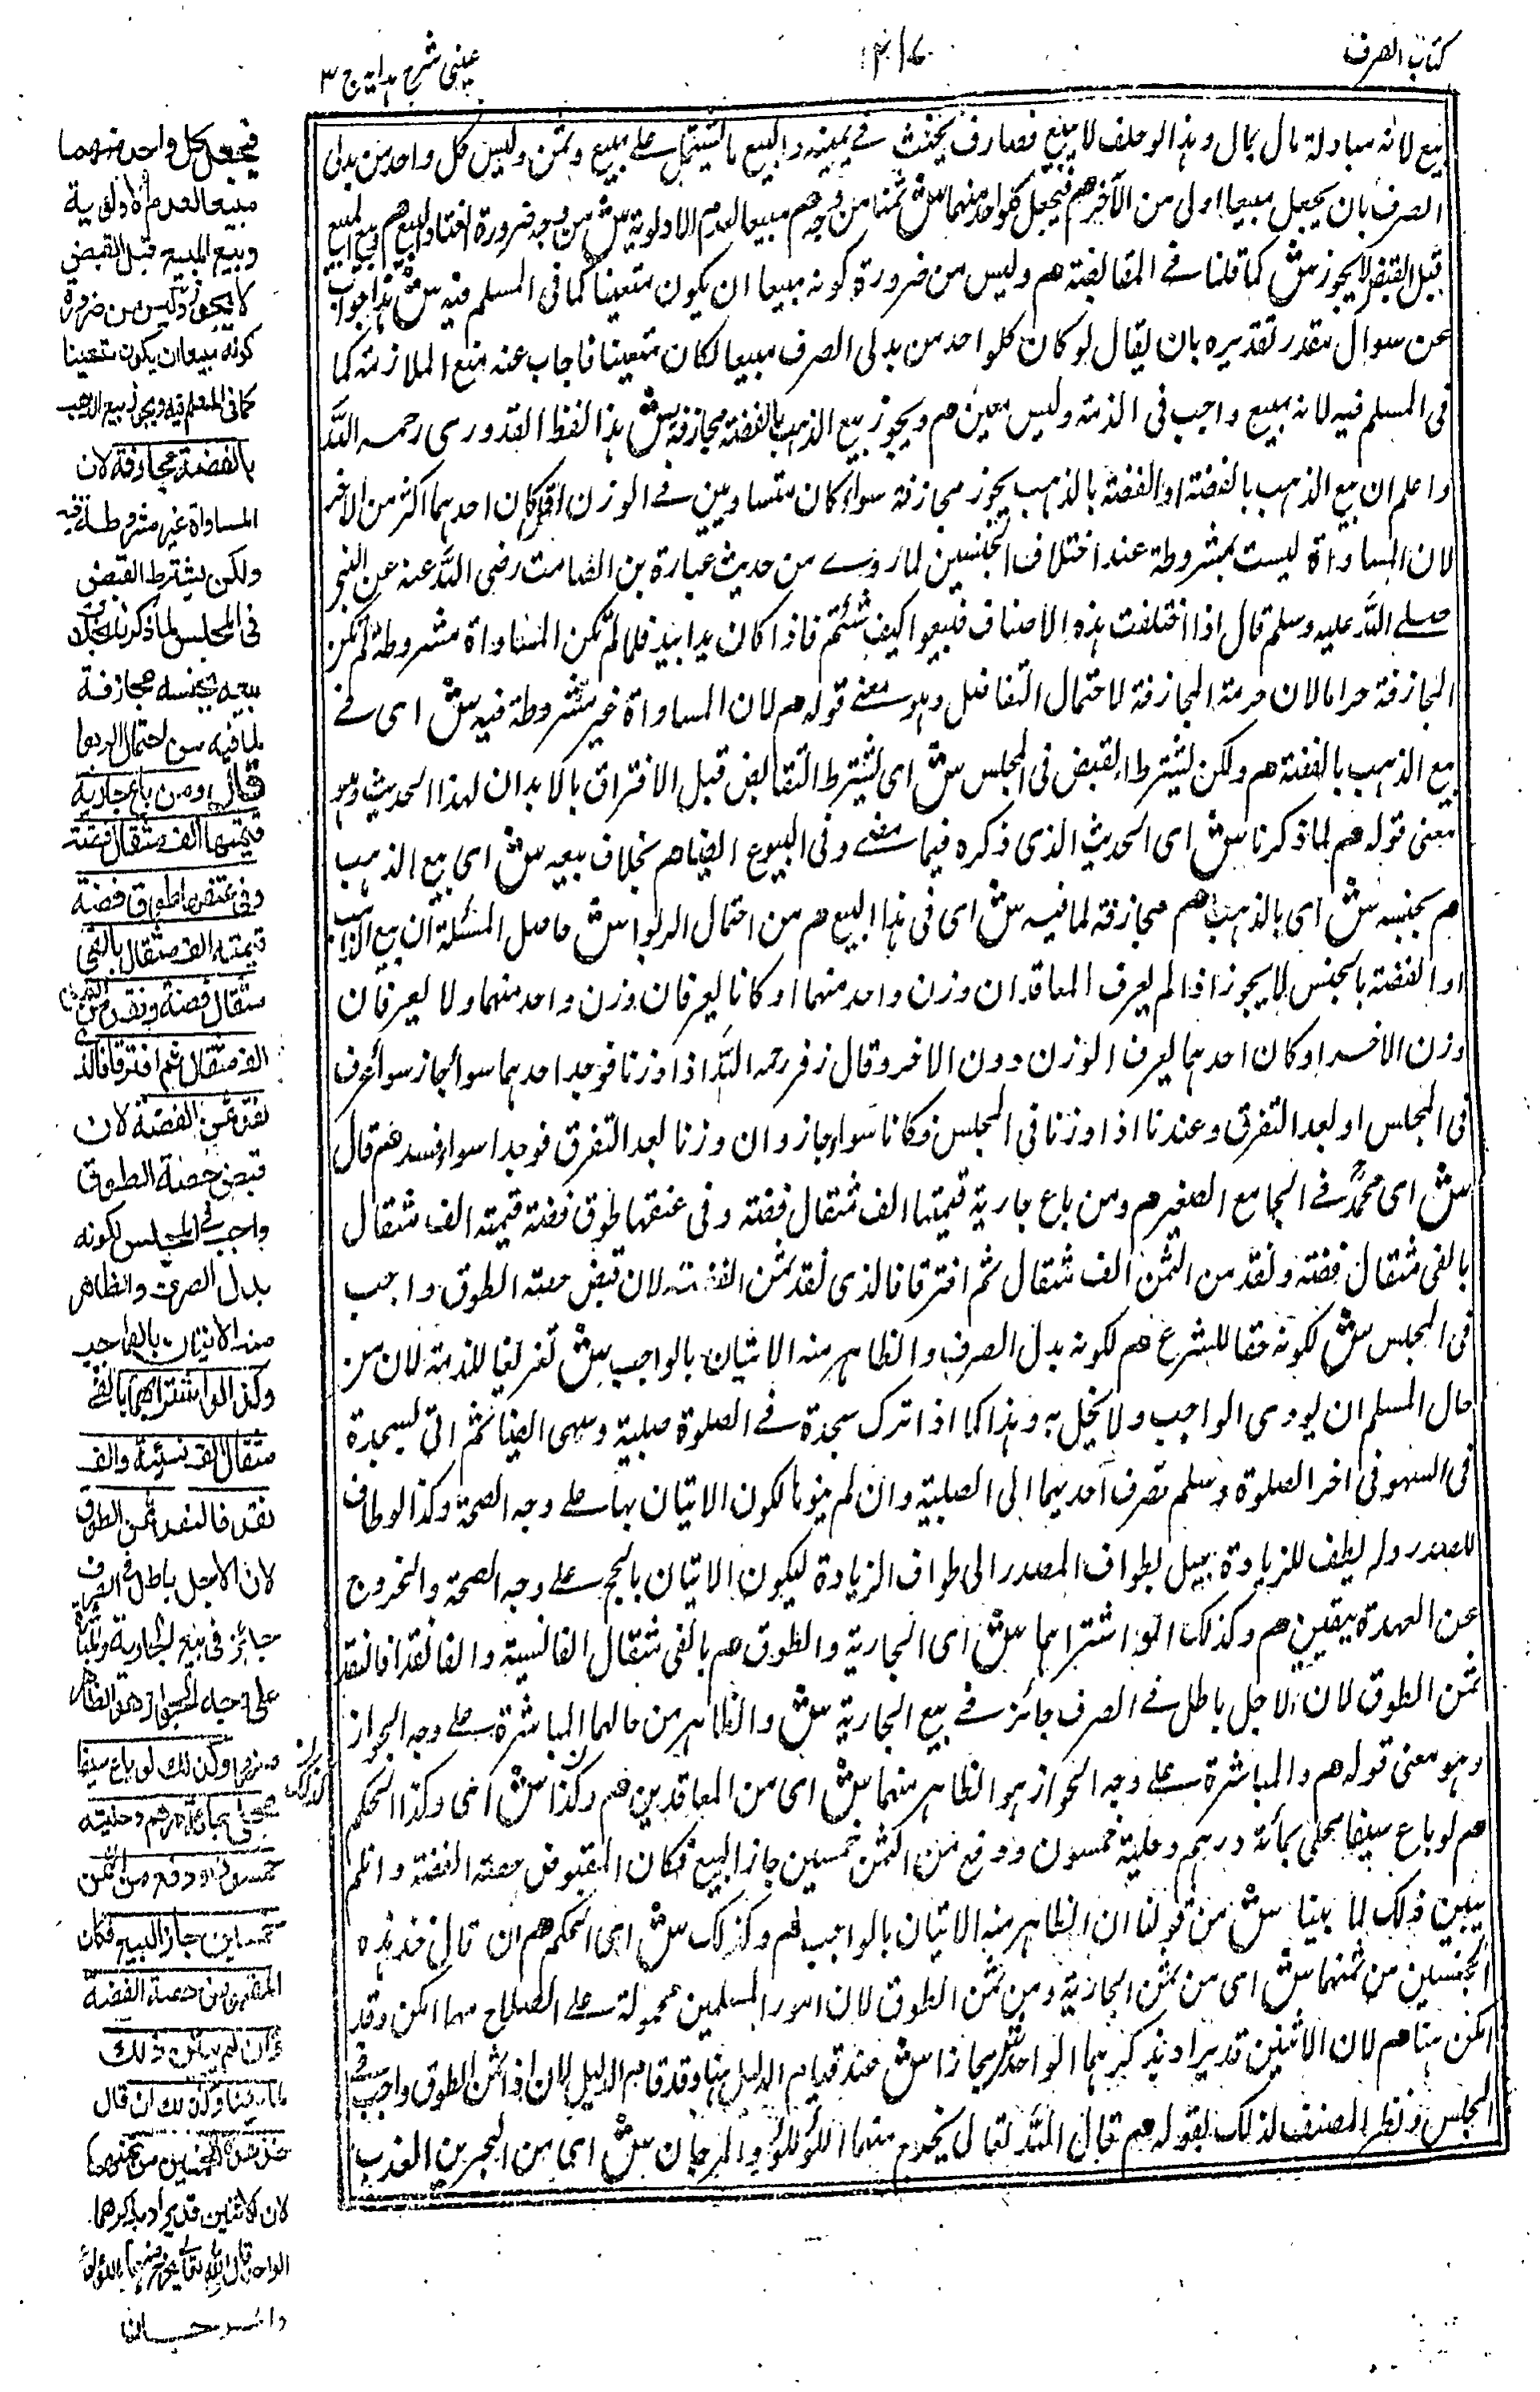 كتاب الصرف
عينى شرح هداية ج ٣
بيع لانه مبادلة مال بمال ولهذا لو حلف لا يبيع فصارف يحنث فے يمينه والبيع ما يشتمل على مبيع وثمن وليس كل واحد من بدلى
الصرف بان يجعل مبيعا اولى من الآخر هم فيجعل كلواحد منهما ش ثمنا من وجه هم مبيعا لعدم الاولوية ش من وجه ضرورة انعقاد البيع هم وبيع المبيع
قبل القبض لا يجوز ش كما قلنا فے المقايضة هم وليس من ضرورة كونه مبيعا ان يكون متعينا كما فى المسلم فيه ش هذا جواب
عن سوال مقدر تقديره بان يقال لو كان كلواحد من بدلى الصرف مبيعا لكان متعينا فاجاب عنه بمنع الملازمة كما
فى المسلم فيه لانه مبيع واجب فى الذمة وليس بمعين هم ويجوز بيع الذهب بالفضة مجازفة ش هذا لفظ القدورى رحمه الله
واعلم ان بيع الذهب بالفضة او الفضة بالذهب يجوز مجازفة سواء كان متساويين فے الوزن او كان احدهما اكثر من الآخر
لان المساواة ليست بمشروطة عند اختلاف الجنسين لما روے من حديث عبادة بن الصامت رضى الله عنه عن النبى
صلے الله عليه وسلم قال اذا اختلفت هذه الاصناف فبيعوا كيف شئتم فاذا كان يدا بيد فلما لم تكن المساواة مشروطة لم تكن
المجازفة حراما لان حرمة المجازفة لاحتمال التفاضل وهو معنے قوله هم لان المساواة غير مشروطة فيه ش اى فے
بيع الذهب بالفضة هم ولكن يشترط القبض فى المجلس ش اى يشترط التقابض قبل الافتراق بالابدان لهذا الحديث وهو
معنى قوله هم لما ذكرنا ش اى الحديث الذى ذكره فيما مضے وفى البيوع ايضا هم بخلاف بيعه ش اى بيع الذهب
هم بجنسه ش اى بالذهب هم مجازفة لما فيه ش اى فى هذا البيع هم من احتمال الربوا ش حاصل المسئلة ان بيع الذهب
او الفضة بالجنس لا يجوز اذا لم يعرف العاقدان وزن واحد منهما او كانا يعرفان وزن واحد منهما ولا يعرفان
وزن الاخر او كان احدهما يعرف الوزن دون الاخر وقال زفر رحمه الله اذا وزنا فوجد احدهما سواء جاز سواء عرف
فى المجلس او بعد التفرق وعندنا اذا وزنا فى المجلس وكانا سواء جاز وان وزنا بعد التفرق فوجدا سواء فسد هم قال
ش اى محمد فے الجامع الصغير هم ومن باع جارية قيمتها الف مثقال فضة وفى عنقها طوق فضة قيمته الف مثقال
بالفى مثقال فضة ونقد من الثمن الف مثقال ثم افترقا فالذى نقد ثمن الفضة لان قبض حصة الطوق واجب
فى المجلس ش لكونه حقا للشرع هم لكونه بدل الصرف والظاهر منه الاتيان بالواجب ش تفريغا للذمة لان من
حال المسلم ان يودى الواجب ولا يخل به وهذا كما اذا ترك سجدة فے الصلوة صلبية وسهى ايضا ثم اتى بسجدة
فى السهو فى اخر الصلوة وسلم تصرف احديهما الى الصلبية وان لم ينوها لكون الاتيان بها على وجه الصحة وكذا لو طاف
للصدر ولم يطف للزيادة يميل بطواف الصدر الى طواف الزيادة ليكون الاتيان بالحج على وجه الصحة والخروج
عن العهدة بيقين هم وكذلك لو اشتراهما ش اى الجارية والطوق هم بالفى مثقال الفا نسيئة والفا نقدا فالنقد
ثمن الطوق لان الاجل باطل فے الصرف جائز فے بيع الجارية ش والظاهر من حالهما المباشرة على وجه الجواز
وهو معنى قوله هم والمباشرة على وجه الجواز هو الظاهر منهما ش اى من العاقدين هم وكذا ش اى وكذا الحكم
هم لو باع سيفا محلى بمائة درهم وحليته خمسون ودفع من الثمن خمسين جاز البيع فكان المقبوض حصة الفضة وان لم
يبين ذلك لما بينا ش من قولنا ان الظاهر منه الاتيان بالواجب هم وكذلك ش اى الحكم هم ان قال خذ هذه
الخمسين من ثمنهما ش اى من ثمن الجارية ومن ثمن الطوق لان امور المسلمين محمولة على الصلاح مهما امكن وقد
امكن هنا هم لان الاثنين قد يراد بذكرهما الواحد مجازا ش عند قيام الدليل هنا وقد قام الدليل لان اخذ ثمن الطوق واجب فى
المجلس ونظر المصنف لذلك بقوله هم قال الله تعالى يخرج منهما اللؤلؤ والمرجان ش اى من البحرين العذب
فيجعل كل واحد منهما
مبيعا لعدم الاولوية
وبيع المبيع قبل القبض
لا يجوز وليس من ضرورة
كونه مبيعا ان يكون متعينا
كما فى المسلم فيه ويجوز بيع الذهب
بالفضة مجازفة لان
المساواة غير مشروطة فيه
ولكن يشترط القبض
فى المجلس لما ذكرنا بخلاف
بيعه بجنسه مجازفة
لما فيه من احتمال الربوا
قال ومن باع جارية
قيمتها الف مثقال فضة
وفى عنقها طوق فضة
قيمته الف مثقال بالفى
مثقال فضة ونقد من الثمن
الف مثقال ثم افترقا فالذى
نقد ثمن الفضة لان
قبض حصة الطوق
واجب فى المجلس لكونه
بدل الصرف والظاهر
منه الاتيان بالواجب
وكذا لو اشتراهما بالفى
مثقال الف نسيئة والف
نقد فالنقد ثمن الطوق
لان الاجل باطل فى الصرف
جائز فى بيع الجارية والمباشرة
على وجه الجواز وهو الظاهر
منهما وكذلك لو باع سيفا
محلى بمائة درهم وحليته
خمسون ودفع من الثمن
خمسين جاز البيع فكان
المقبوض حصة الفضة
وان لم يبين ذلك
لما بينا وكذلك ان قال
خذ هذه الخمسين من ثمنهما
لان الاثنين قد يراد بذكرهما
الواحد قال الله تعالى يخرج منهما اللؤلؤ
والمرجان